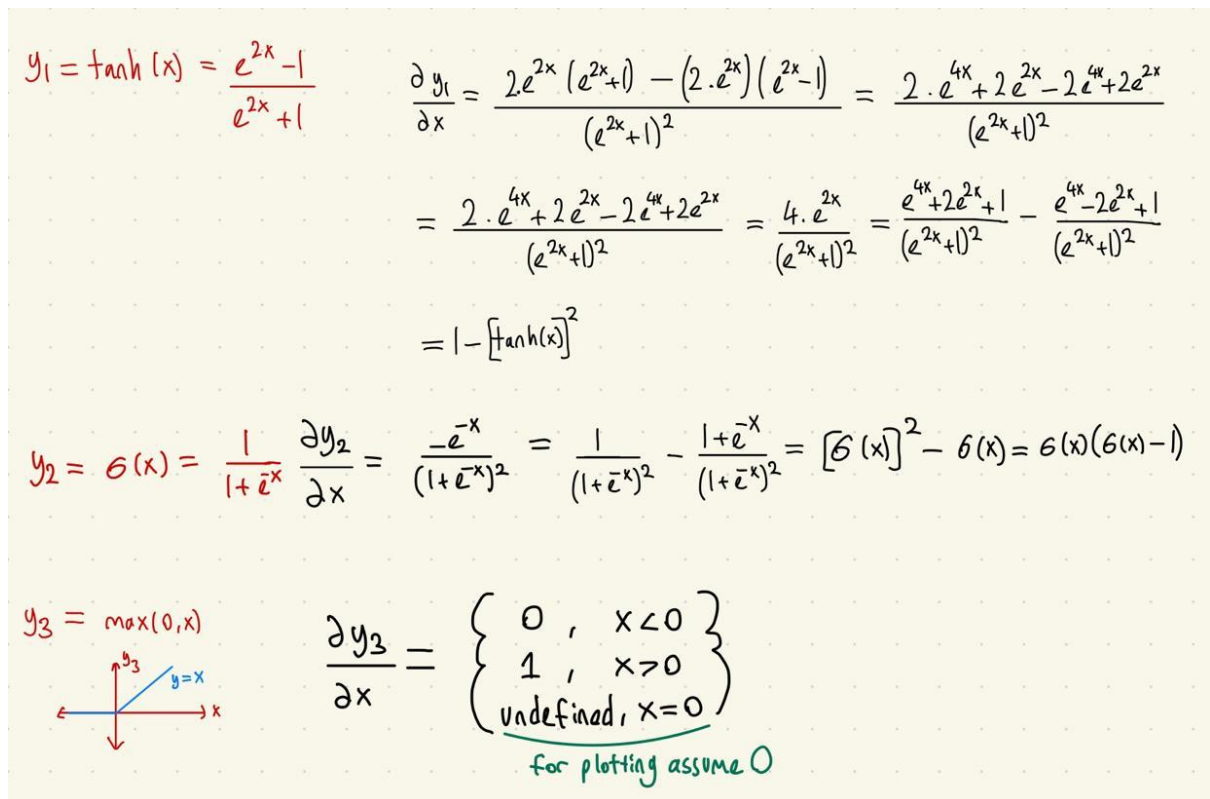 y₁ = tanh(x) = (e^{2x} -1)/(e^{2x} +1)
∂y₁/∂x = (2e^{2x}(e^{2x}+1) - (2.e^{2x})(e^{2x}-1))/(e^{2x}+1)² = (2.e^{4x}+2e^{2x}-2e^{4x}+2e^{2x})/(e^{2x}+1)²
= (2.e^{4x}+2e^{2x}-2e^{4x}+2e^{2x})/(e^{2x}+1)² = 4.e^{2x}/(e^{2x}+1)² = (e^{4x}+2e^{2x}+1)/(e^{2x}+1)² - (e^{4x}-2e^{2x}+1)/(e^{2x}+1)²
= 1-[tanh(x)]²
y₂ = σ(x) = 1/(1+e^{-x}) ∂y₂/∂x = -e^{-x}/(1+e^{-x})² = 1/(1+e^{-x})² - (1+e^{-x})/(1+e^{-x})² = [σ(x)]² - σ(x) = σ(x)(σ(x)-1)
y₃ = max(0,x)
y₃
y=x
x
∂y₃/∂x = {
0 , x<0
1 , x>0
undefined, x=0 }
for plotting assume 0